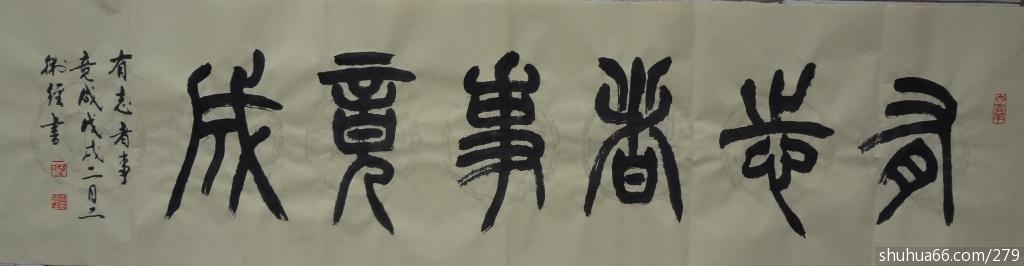 有志者事竟成
有志者事
竟成戊戌二月二
衛經書
shuhua66.com/279